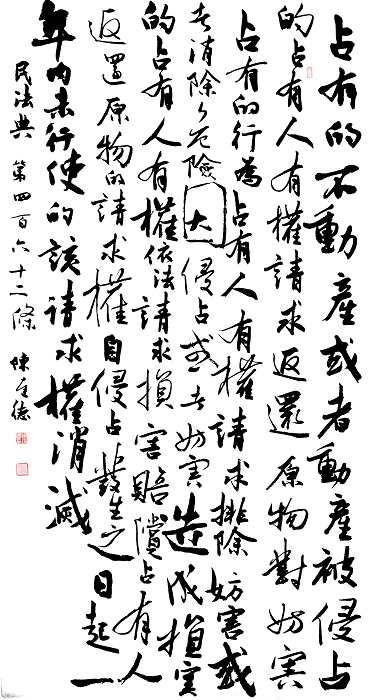 占有的不動產或者動產被侵占
的占有人有權請求返還原物對妨害
占有的行為占有人有權請求排除妨害或
者消除危險因侵占或者妨害造成損害
的占有人有權依法請求損害賠償占有人
返還原物的請求權自侵占發生之日起一
年內未行使的該請求權消滅
民法典 第四百六十二條 陳德